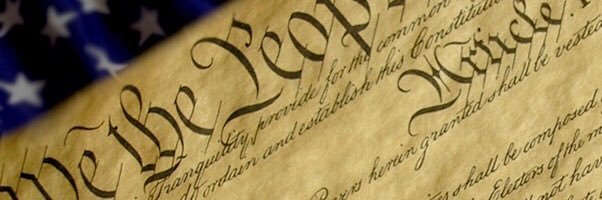 We the Peop
Tranquility, provide for the common
ordain and establish this Constitu
Article
Powers herein granted shall be veste
shall be composed
Electors of the m
not hav